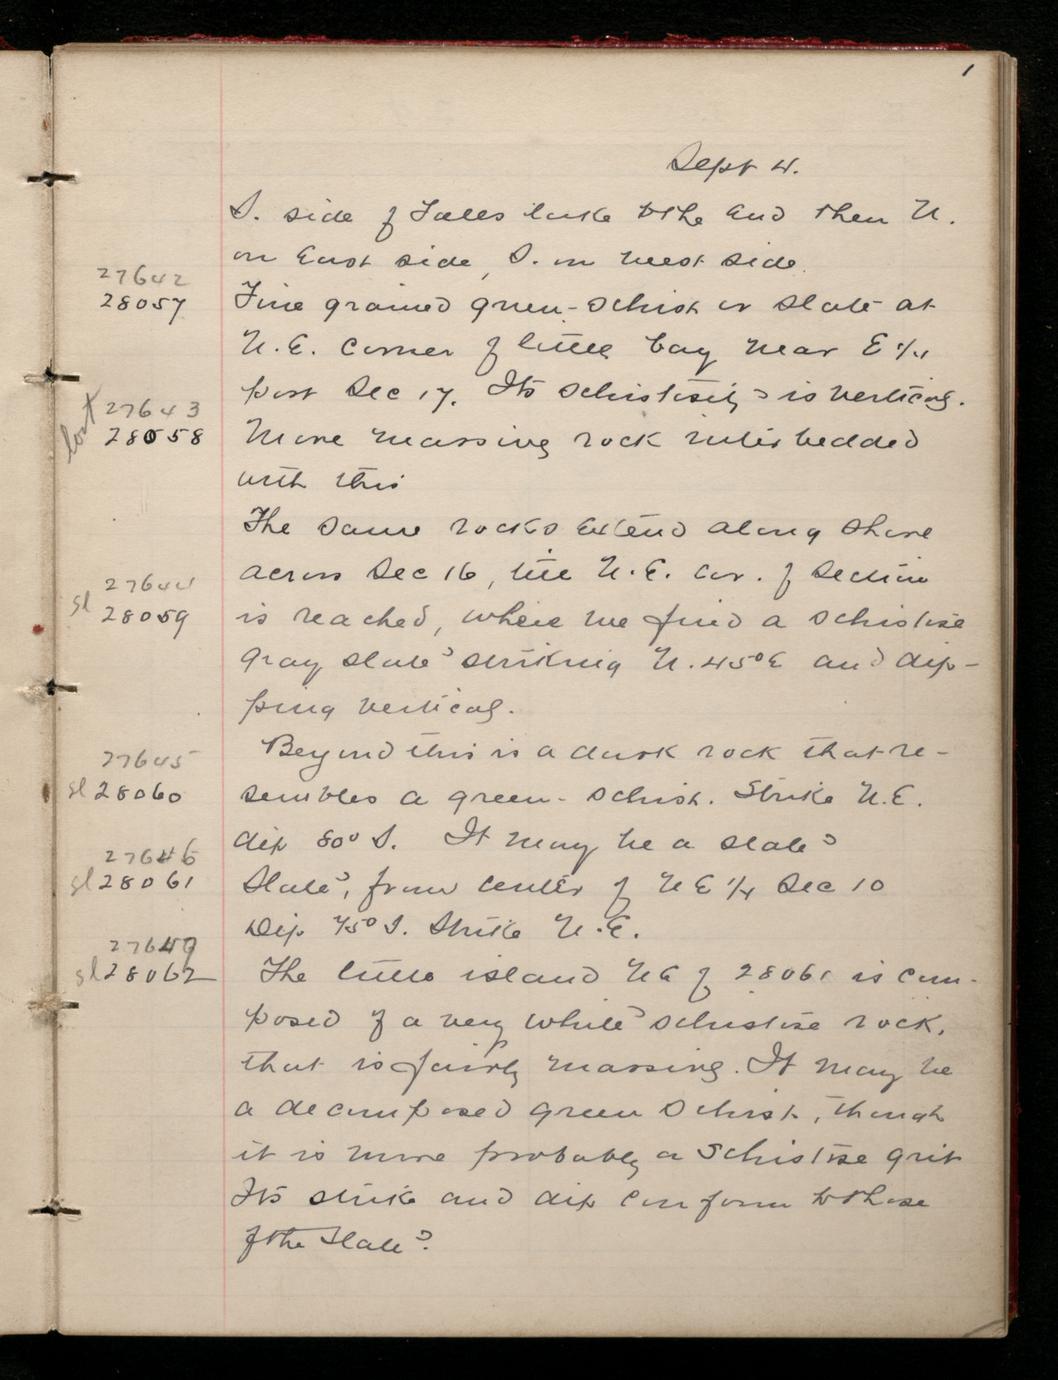 1
Sept 4.
S. side of Falls lake to the End then N.
on East side, S. on west side.
27642
28057 Fine grained green-schist or slate at
N.E. corner of little bay near E 1/4
post Sec 17. Its schistosity is vertical.
lost 27643
28058 More massive rock interbedded
with this
The same rocks extend along shore
across Sec 16, till N.E. cor. of section
27644
sl 28059 is reached, where we find a schistose
gray slate striking N. 45° E and dip-
ping vertical.
Beyond this is a dark rock that re-
27645
sl 28060 sembles a green-schist. Strike N.E.
dip 80° S. It may be a slate
27646
sl 28061 Slate, from center of N E 1/4 Sec 10
Dip 75° S. Strike N.E.
27649
sl 28062 The little island NE of 28061 is com-
posed of a very white schistose rock,
that is fairly massive. It may be
a decomposed green schist, though
it is more probably a schistose grit
Its strike and dip conform to those
of the slate.